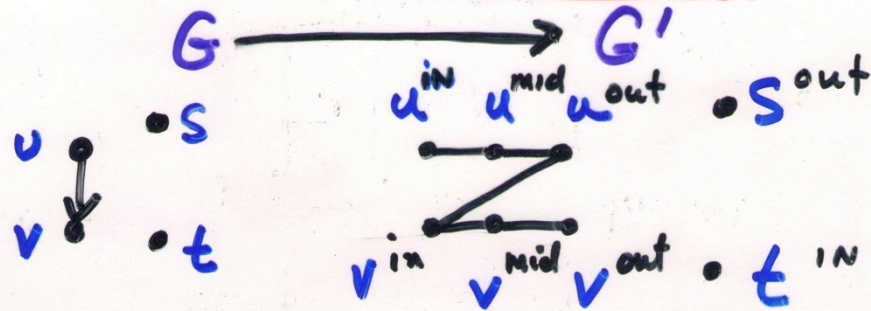 G G'
u^in u^mid u^out s^out
u s
v t
v^in v^mid v^out t^IN